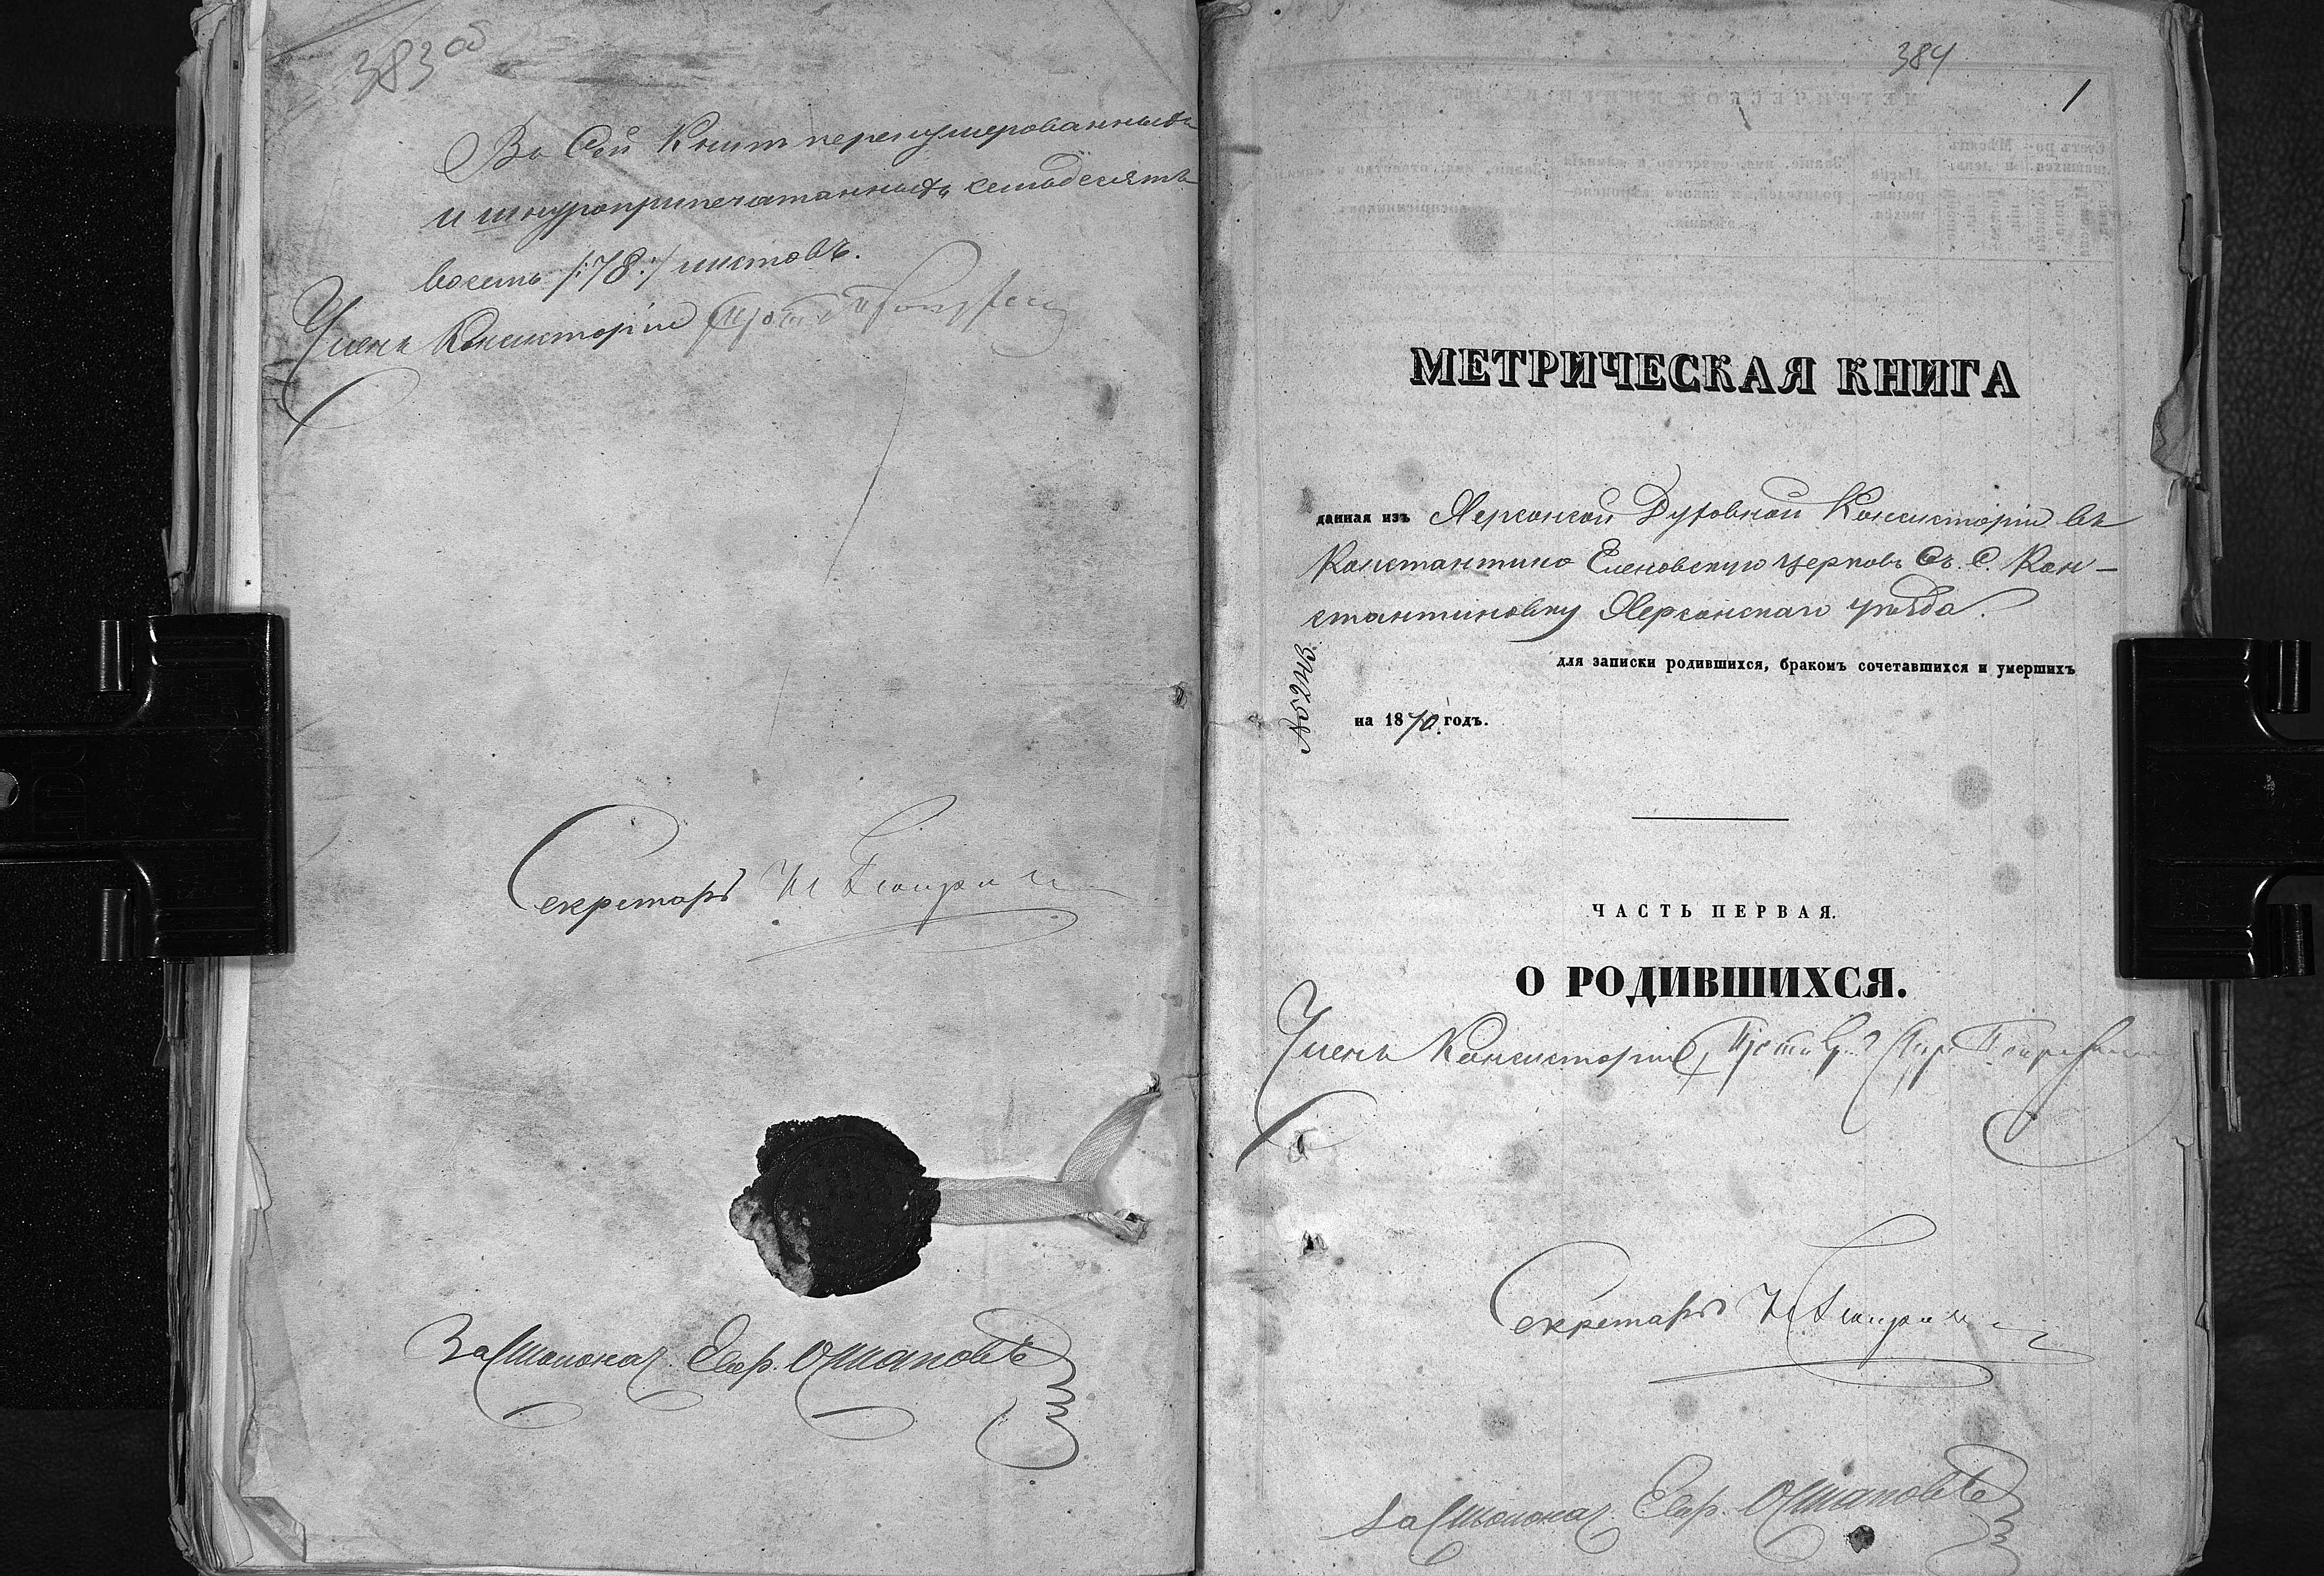 383 об
Въ Сей Книгѣ перенумерованныхъ
и шнуроприпечатанныхъ семьдесятъ
восемь /:78:/ листовъ.
Членъ Консисторіи
Секретарь
Застолонач. Евр. Остаповъ
384
1
МЕТРИЧЕСКАЯ КНИГА
данная изъ Херсонской Духовной Консисторіи въ
Константино Еленовскую церковь Съ. С. Кон-
стантиновку Херсонскаго уѣзда.
для записки родившихся, бракомъ сочетавшихся и умершихъ
№5243
на 1870. годъ.
ЧАСТЬ ПЕРВАЯ.
О РОДИВШИХСЯ.
Членъ Консисторіи
Секретарь
Застолонач. Евр. Остаповъ